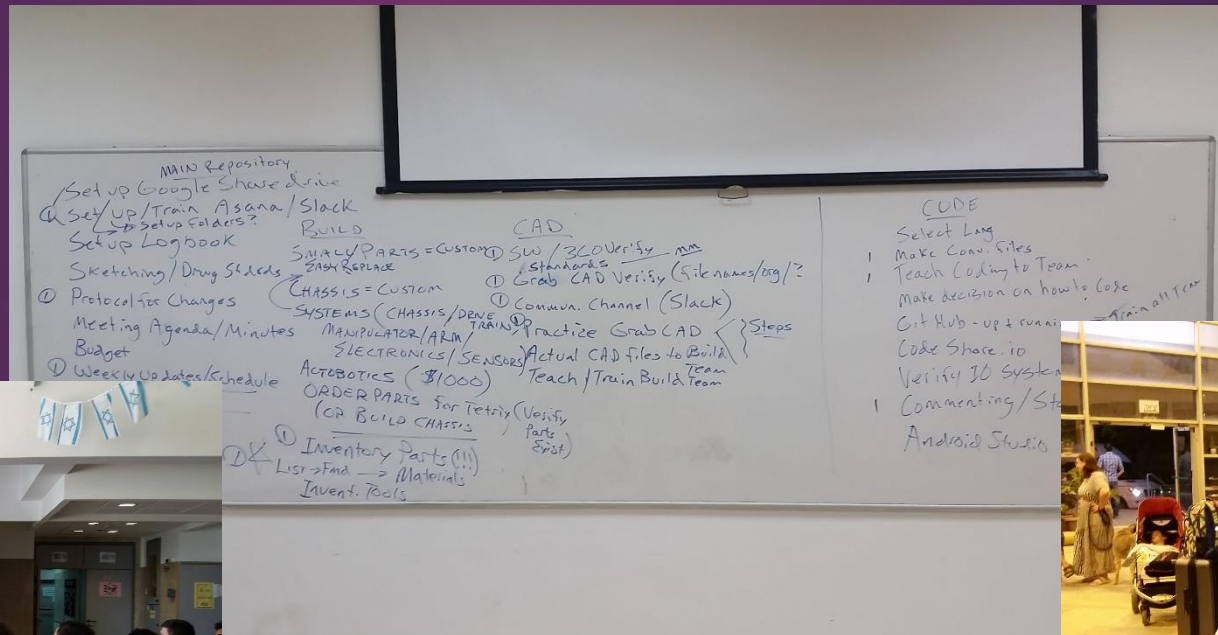 MAIN Repository
Set up Google Share drive
① Set/up/Train Asana/Slack
↳ Setup Folders?
Setup Logbook
Sketching/Drwg Stdrds
① Protocol for Changes
Meeting Agenda/Minutes
Budget
① Weekly Updates/Schedule
BUILD
SMALL/PARTS = CUSTOM
EASY REPLACE
CHASSIS = CUSTOM
SYSTEMS (CHASSIS/DRIVE
TRAIN
MANIPULATOR/ARM/
ELECTRONICS/SENSORS)
ACTOBOTICS ($1000)
ORDER PARTS for Tetrix (Verify
Parts
Exist)
(OR BUILD CHASSIS
① Inventory Parts (!!!)
① List → Find → Materials
Invent. Tools
CAD
① SW / Verify mm
Standards
① Grab CAD Verify (file names/org/?
① Commun. Channel (Slack)
Practize GrabCAD
Steps
Actual CAD files to Build
Team
Teach/Train Build Team
CODE
Select Lang
1 Make Conv. files
1 Teach Coding to Team
Make decision on how to Code
GitHub - up + runni → Train all Team
Code Share.io
Verify IO System
1 Commenting/Sta
Android Studio